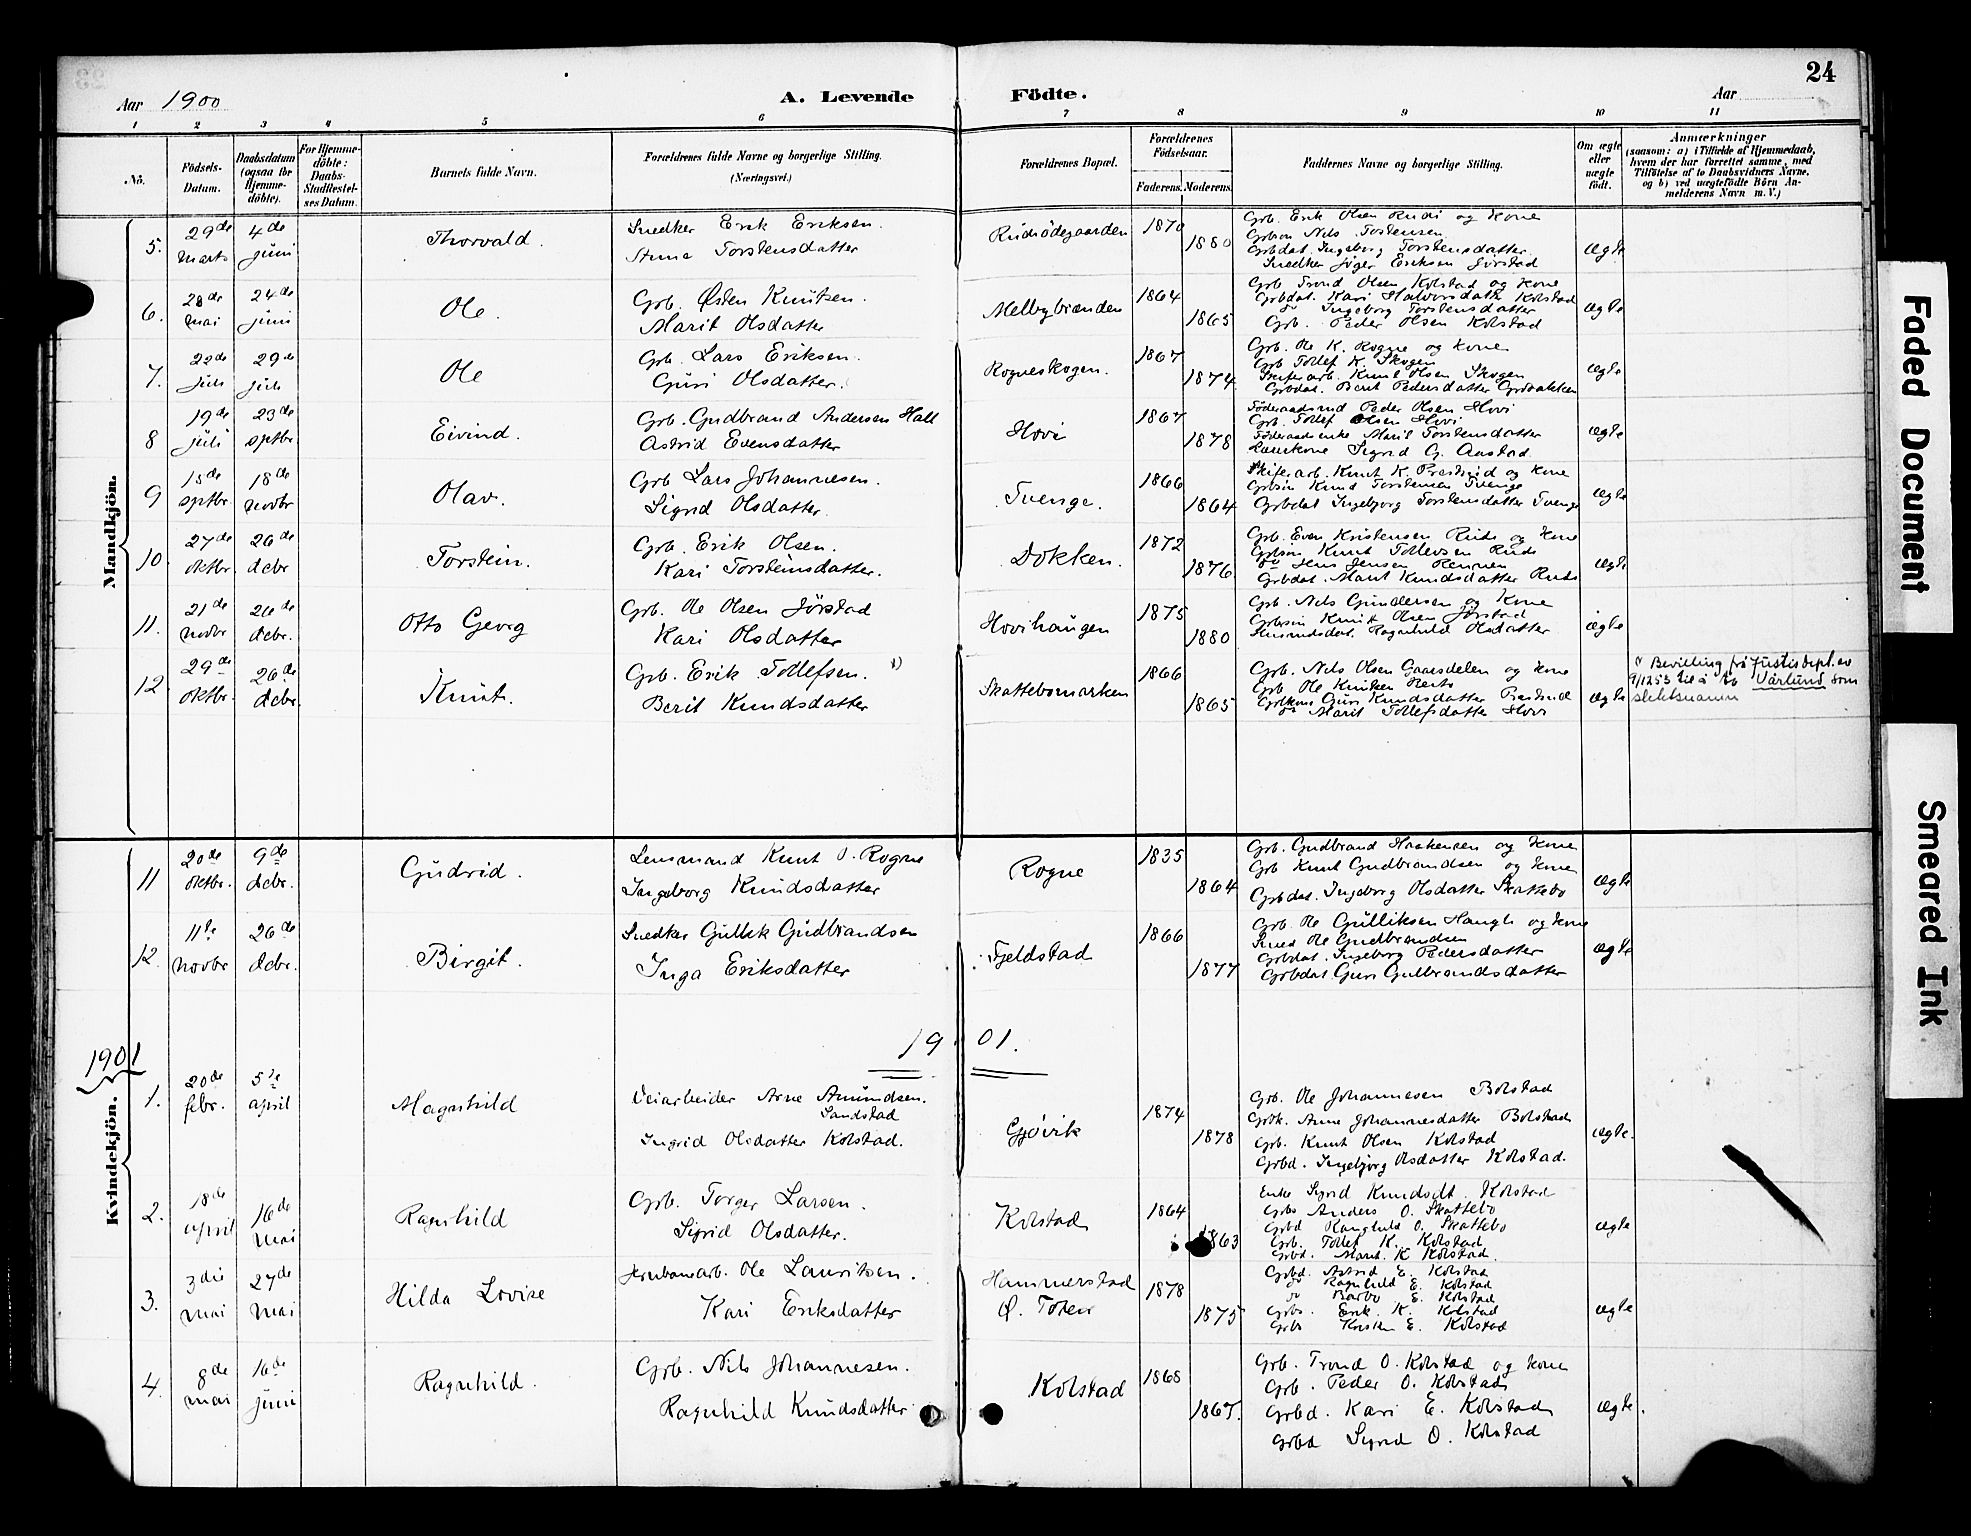 24
Aar 1900
A. Levende Födte.
Aar
1 2 3 4 5 6 7 8 9 10 11
No.
Födsels-Datum.
Daabsdatum (ogsaa for Hjemme-döbte).
For Hjemme-döbte: Daabs-Stadfæstel-ses Datum.
Barnets fulde Navn.
Forældrenes fulde Navne og borgerlige Stilling. (Næringsvei.)
Forældrenes Bopæl.
Forældrenes Födselsaar.
Faderens. Moderens.
Faddernes Navne og borgerlige Stilling.
Om ægte eller uægte födt.
Anmærkninger
(saasom: a) i Tilfælde af Hjemmedaab, hvem der har forrettet samme, med Tilföielse af to Daabsvidners Navne, og b) ved uægtefödte Börn An-melderens Navn m. V.)
Mandkjön.
5. 29de marts 4de juni Thorvald. Snedker Erik Eriksen. Anna Torstensdatter Rudsødegaarden 1870 1880
Grb. Erik Olsen Rudi og Kone
Grbsøn Nils Torstensen
Grbdat. Ingeborg Torstensdatter
Snedker Eriksen Jørstad
ægte
6. 28de mai 24de juni Ole. Grb. Østen Knutsen. Marit Olsdatter Melbybrænden 1864 1865
Grb Trond Olsen Kolstad og Kone
Grbdat. Kari Halvorsdatter Kolstad
do Ingeborg Torstensdatter
Grb. Peder Olsen Kolstad
ægte
7. 22de juli 29de juli Ole Grb. Lars Eriksen. Guri Olsdatter. Rogneskogen. 1867 1874
Grb. Ole K. Rogne og Kone
Grb Tollef K. Skogen
Skiferarb. Knut Olsen Skogen
Grbdat. Berit Pedersdatter
ægte
8 19de juli 23de septbr Eivind. Grb. Gudbrand Andersen Hall Astrid Evensdatter Hovi 1867 1878
Føderaadsmd Peder Olsen Hovi
Grb. Tollef Olsen Hovi
Føderaadsenke Marit Torstensdatter
Sigrid G. Aastad
ægte
9 15de septbr. 18de novbr Olav. Grb Lars Johannesen. Sigrid Olsdatter. Tvenge. 1866 1864
Skiferarb. Knut K. Præstrud og Kone
Grbsøn Knud Torstensen Tvenge
Grbdat Ingebjorg Torstensdatter Tvenge
ægte
10. 27de oktbr. 26de debr. Torstein. Grb. Erik Olsen. Kari Torsteinsdatter. Dokken. 1872 1876
Grb. Even Kristensen Ruds og Kone
Grbsøn Knut Tollevsen Ruds
do Jens Jensen Remmen
Grbdat. Marit Knudsdatter Ruds
ægte
11. 21de novbr 26de debr. Otto Georg Grb. Ole Olsen Jørstad Kari Olsdatter Hovihaugen 1875 1880
Grb. Nils Gundersen og Kone
Grbsøn Knut Olsen Jørstad
Husmdsdat. Ragnhild Olsdatter
ægte
12. 29de oktbr. 26de debr. Knut. Grb. Erik Tollefsen. 1) Berit Knudsdatter Skattebomarken 1866 1865
Grb. Nils Olsen Gaarsdelen og Kone
Grb Ole Knutsen
Grbkone Guri Knudsdatter Præstrud
do Marit Tollefsdatter Hovi
ægte
1) Bevilling frå Justisdept. av
9/1253 til å ta Varlund som
slektsnamn
Kvindekjön.
11 20de oktbr. 9de debr. Gudrid. Lensmand Knut O. Rogne Ingeborg Knudsdatter Rogne 1835 1864
Grb. Gudbrand Haakensen og Kone
Grb Knut Gudbrandsen og Kone
Grbdat. Ingeborg Olsdatter Skattebo
ægte
12. 11te novbr 26de debr. Birgit. Snedker Gullik Gudbrandsen Inga Eriksdatter Fjeldstad 1866 1877
Grb. Ole Gulliksen Haugli og Kone
Sned Ole Gudbrandsen
Grbdat. Ingeborg Pedersdatter
Grbdat Guri Gulbrandsdatter
ægte
1901
1901.
1. 20de febr. 5te april Magnhild Veiarbeider Arne Amundsen. Sandstad Ingrid Olsdatter Kolstad. Gjøvik 1874 1878
Grb. Ole Johannesen Bolstad
Grbk. Anne Johannesdatter Bolstad
Grb. Knut Olsen Kolstad
Grbd. Ingebjorg Olsdatter Kolstad.
ægte.
2. 18de april 16de mai Ragnhild Grb. Torger Larsen. Sigrid Olsdatter. Kolstad 1864 1863
Enke Sigrid Knudsdt. Kolstad
Grbs Anders O. Skattebo
Grbd Ranghild O. Skattebo
Grb. Tollef K. Kolstad
Grbd. Marit K Kolstad.
ægte
3. 3die mai 27de mai Hilda Lovise Jernbanearb. Ole Lauritsen. Kari Eriksdatter Hammerstad Ø. Toten 1878 1875
Grbd. Astrid E. Kolstad
do Ragnhild E. Kolstad
do Barbo E. Kolstad
Grbs. Erik K. Kolstad
Grbs Kristen E. Kolstad
ægte
4. 8de mai 16de juni Ragnhild. Grb. Nils Johannesen. Ragnhild Knudsdatter Kolstad 1868 1867.
Grb. Trond O. Kolstad og Kone
Grb. Peder O. Kolstad
Grbd. Kari E. Kolstad
Grbd Sigrid O. Kolstad
ægte.
Faded Document
Smeared Ink